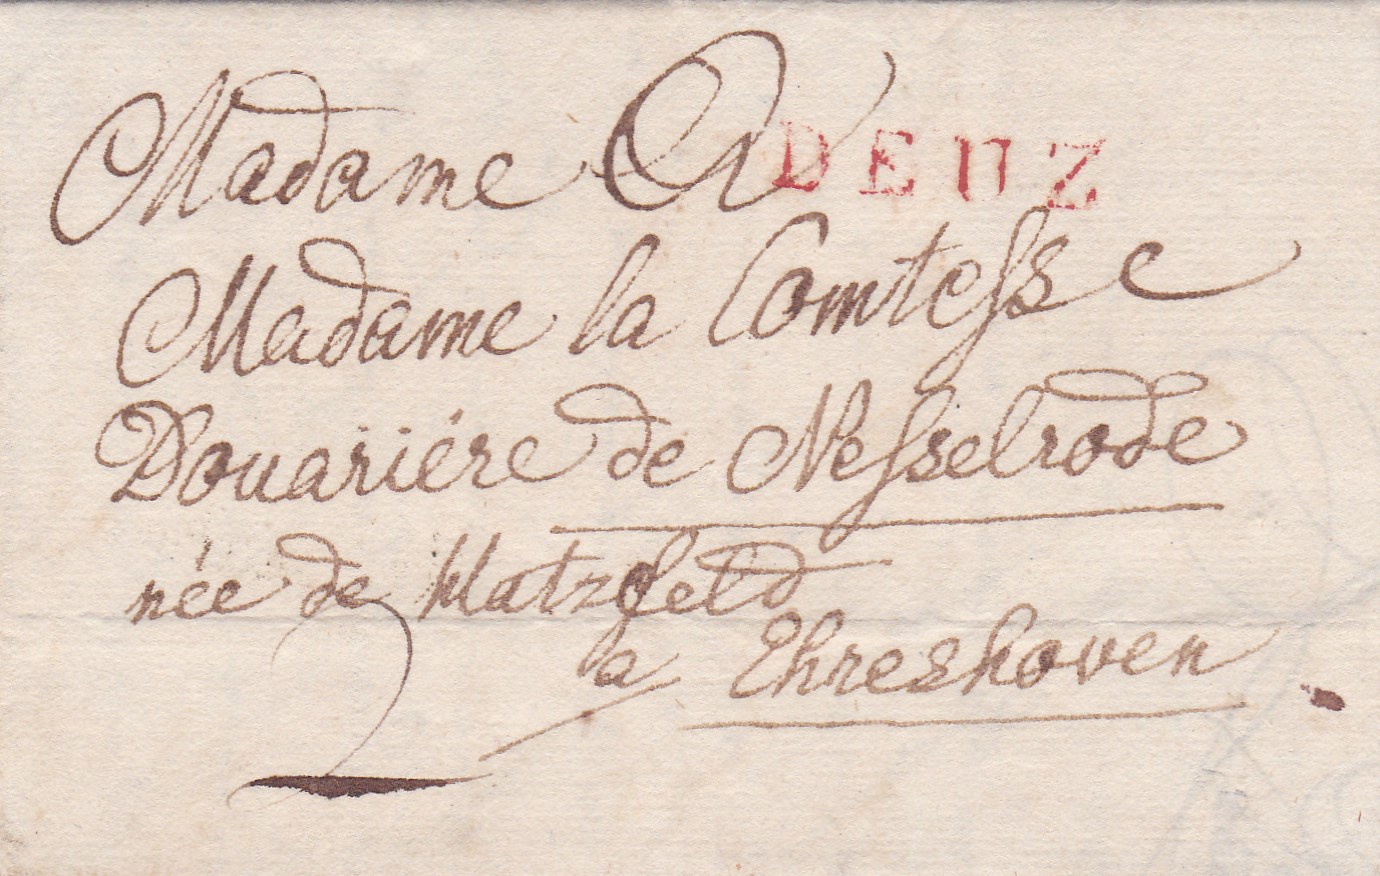 Madame
DEUZ
Madame la Comtesse
Douariére de Nesselrode
née de Hatzfeld
a Ehreshoven
2